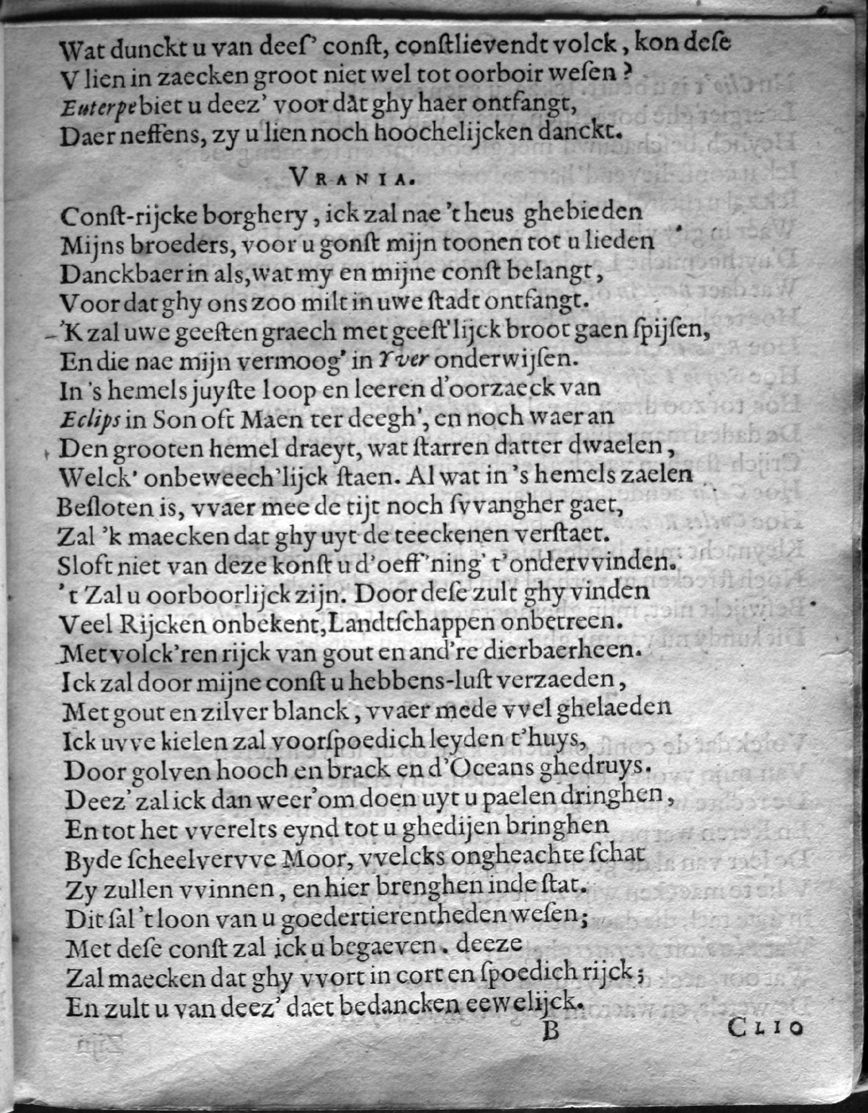 Wat dunckt u van deeſ' conſt, conſtlievendt volck, kon deſe
V lien in zaecken groot niet wel tot oorboir weſen?
Euterpe biet u deez' voor dat ghy haer ontfangt,
Daer neffens, zy u lien noch hoochelijcken danckt.
VRANIA.
Conſt-rijcke borghery, ick zal nae 't heus ghebieden
Mijns broeders, voor u gonſt mijn toonen tot u lieden
Danckbaer in als, wat my en mijne conſt belangt,
Voor dat ghy ons zoo milt in uwe ſtadt ontfangt.
'K zal uwe geeſten graech met geeſt'lijck broot gaen ſpijſen,
En die nae mijn vermoog' in Yver onderwijſen.
In 's hemels juyſte loop en leeren d'oorzaeck van
Eclips in Son oft Maen ter deegh', en noch waer an
Den grooten hemel draeyt, wat ſtarren datter dwaelen,
Welck' onbeweech'lijck ſtaen. Al wat in 's hemels zaelen
Beſloten is, vvaer mee de tijt noch ſvvangher gaet,
Zal 'k maecken dat ghy uyt de teeckenen verſtaet.
Sloft niet van deze konſt u d'oeff'ning' t'ondervvinden.
't Zal u oorboorlijck zijn. Door deſe zult ghy vinden
Veel Rijcken onbekent, Landtſchappen onbetreen.
Met volck'ren rijck van gout en and're dierbaerheen.
Ick zal door mijne conſt u hebbens-luſt verzaeden,
Met gout en zilver blanck, vvaer mede vvel ghelaeden
Ick uvve kielen zal voorſpoedich leyden t'huys,
Door golven hooch en brack en d'Oceans ghedruys.
Deez' zal ick dan weer'om doen uyt u paelen dringhen,
En tot het vverelts eynd tot u ghedijen bringhen
By de ſcheelvervve Moor, vvelcks ongheachte ſchat
Zy zullen vvinnen, en hier brenghen inde ſtat.
Dit ſal 't loon van u goedertierentheden weſen;
Met deſe conſt zal ick u begaeven. deeze
Zal maecken dat ghy vvort in cort en ſpoedich rijck;
En zult u van deez' daet bedancken eewelijck.
B CLIO